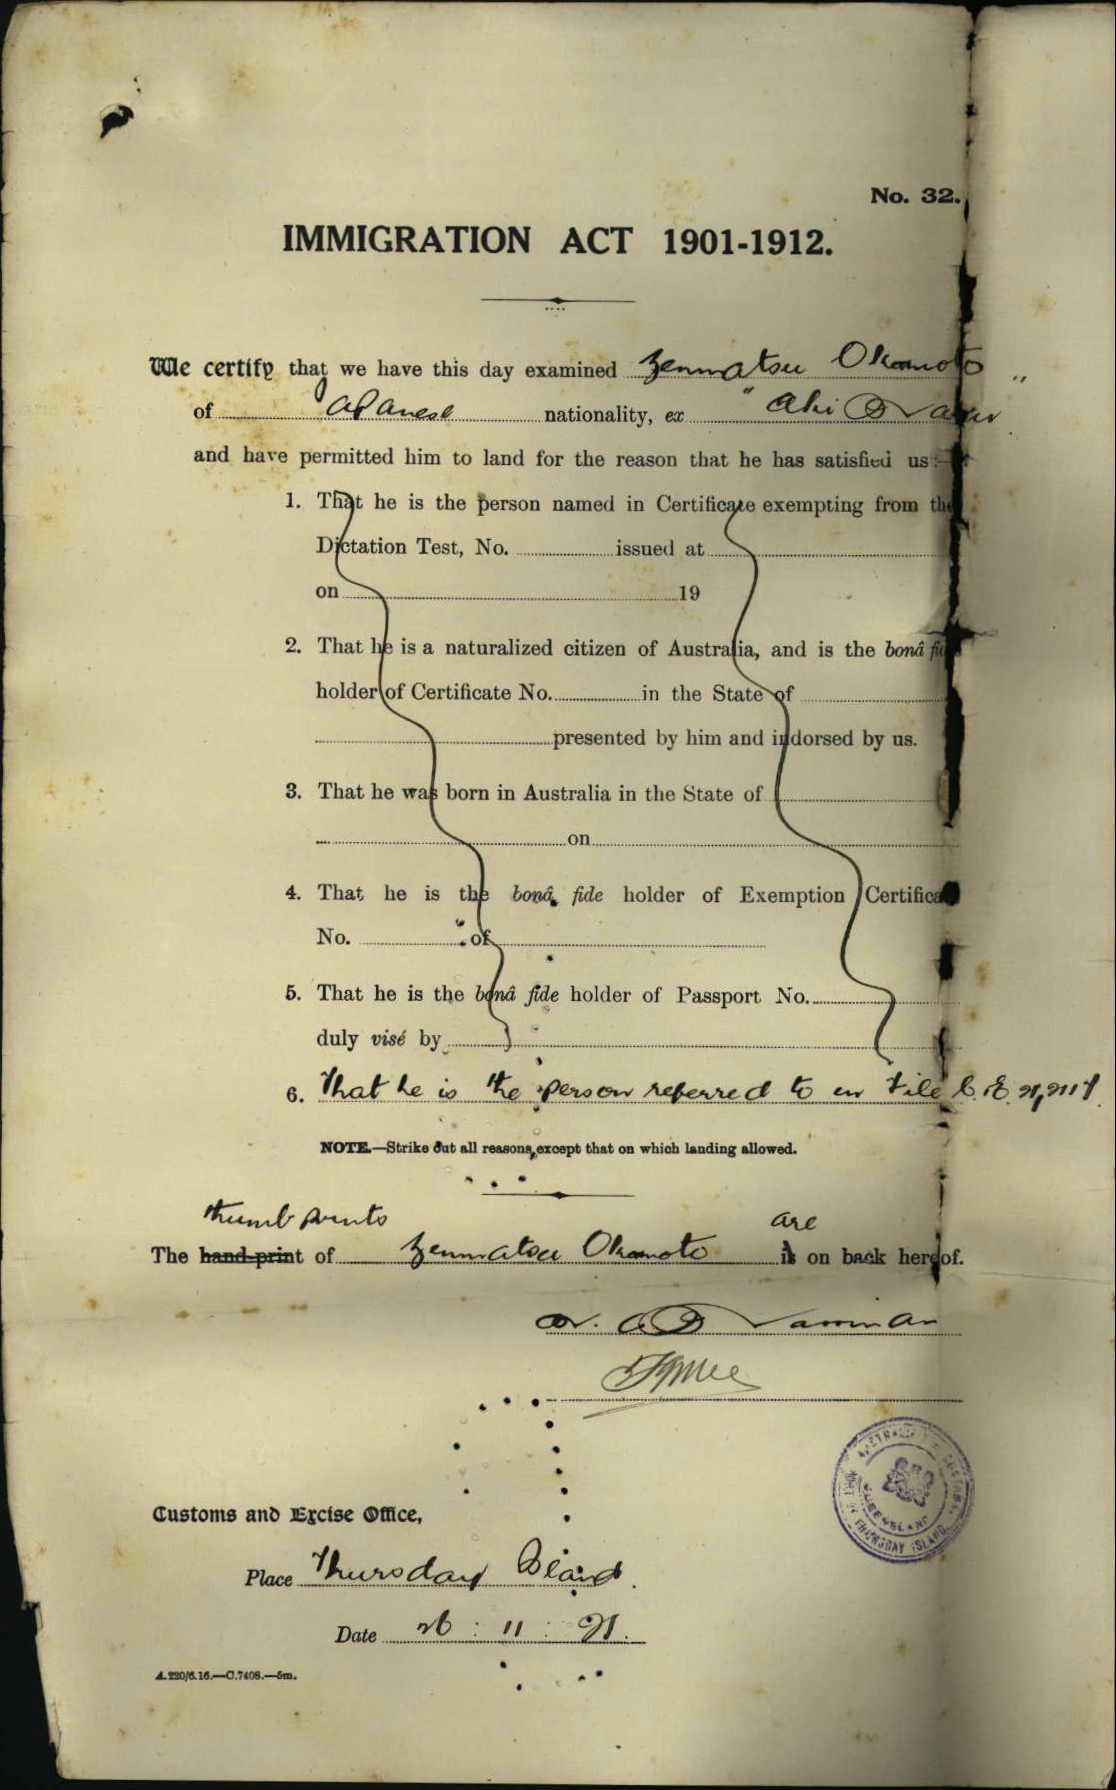 No. 32.
IMMIGRATION ACT 1901-1912.
We certify that we have this day examined Zenmatsu Okamoto
of Japanese nationality, ex "Aki Maru"
and have permitted him to land for the reason that he has satisfied us :—
1. That he is the person named in Certificate exempting from the
Dictation Test, No. issued at
on 19
2. That he is a naturalized citizen of Australia, and is the bonâ fide
holder of Certificate No. in the State of
presented by him and indorsed by us.
3. That he was born in Australia in the State of
on
4. That he is the bonâ fide holder of Exemption Certificate
No. of
5. That he is the bonâ fide holder of Passport No.
duly visé by
6. That he is the person referred to in file C.E.
NOTE.—Strike out all reasons except that on which landing allowed.
thumb prints are
The hand-print of Zenmatsu Okamoto is on back hereof.
Customs and Excise Office,
AUSTRALIA CUSTOMS
QUEENSLAND
PORT OF THURSDAY ISLAND
Place Thursday Island.
Date 26 : 11 : 21.
A.220/6.16.—C.7408.—5m.